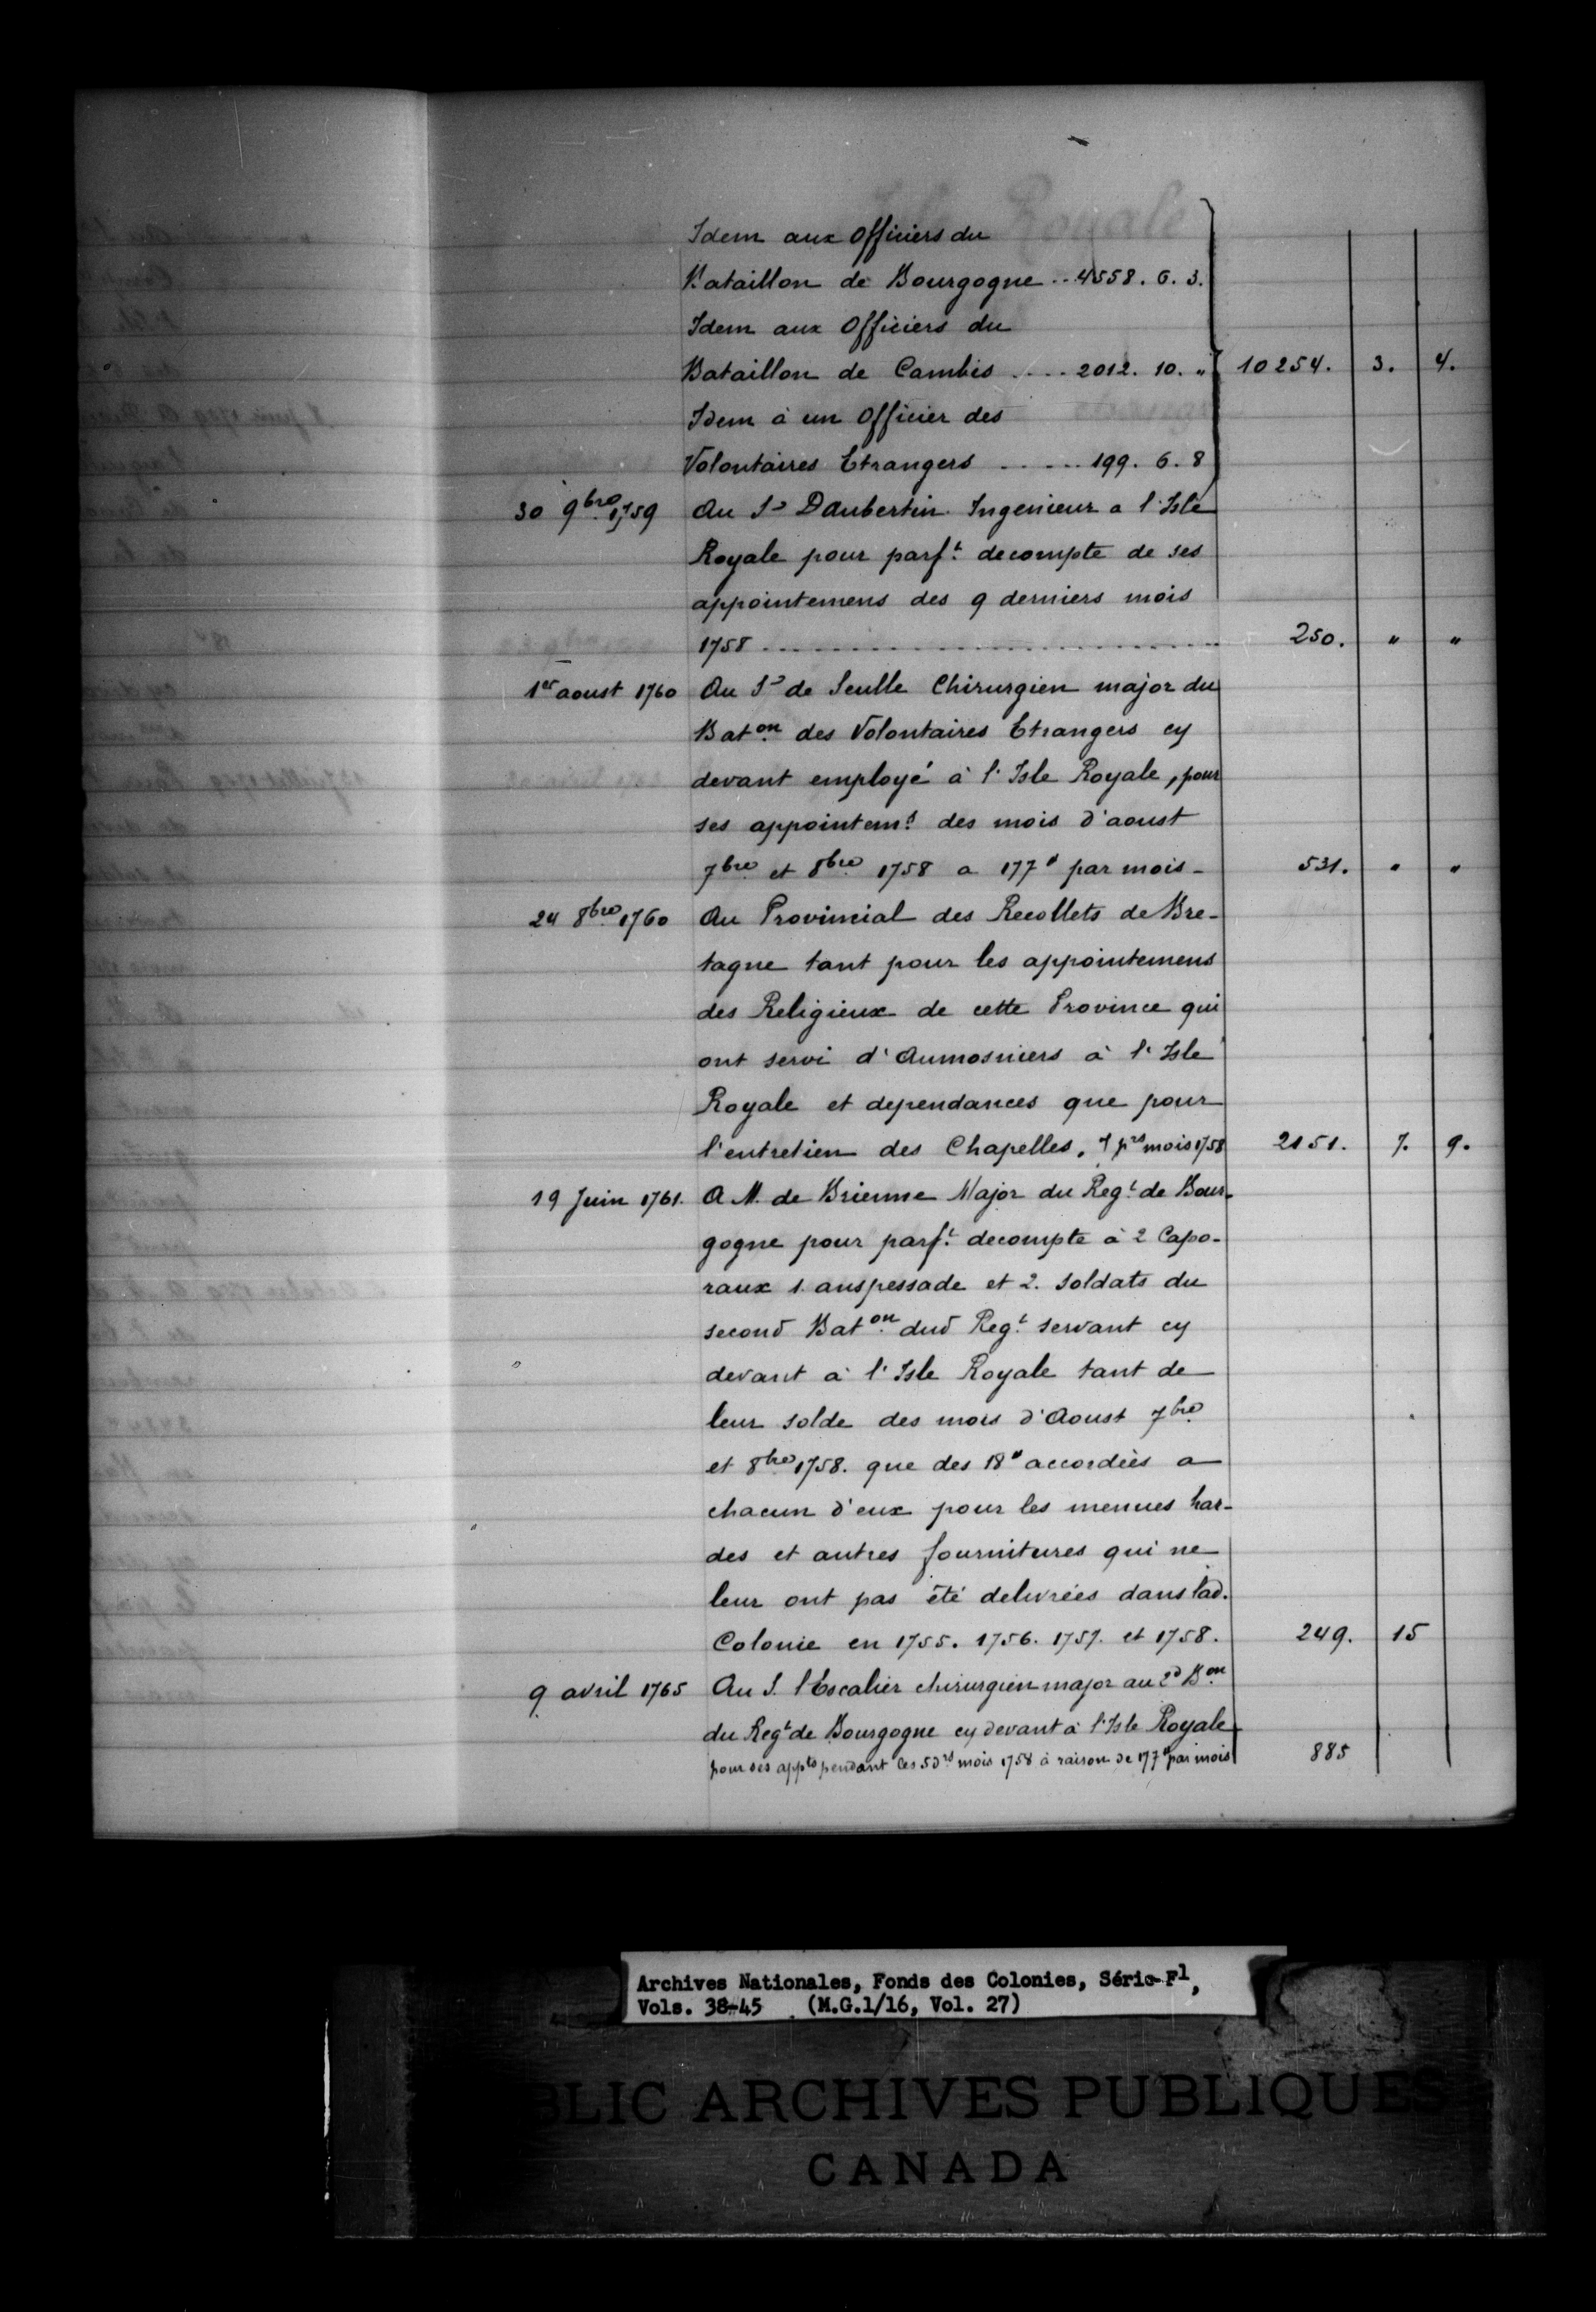 Idem aux Officiers du
Bataillon de Bourgogne .. 4558. 6. 3.
Idem aux Officiers du
Bataillon de Cambis .... 2012. 10. " 10254. 3. 4.
Idem à un Officier des
Volontaires Etrangers ..... 199. 6. 8
30 9bre 1759 Au Sr Daubertin Ingenieur a l'Isle
Royale pour parft decompte de ses
appointemens des 9 derniers mois
1758 .......................... 250. " "
1er aoust 1760 Au Sr de Seulle Chirurgien major du
Baton des Volontaires Etrangers cy
devant employé à l'Isle Royale, pour
ses appointems des mois d'aoust
7bre et 8bre 1758 a 177# par mois - 531. " "
24 8bre 1760 Au Provincial des Recollets de Bre-
tagne tant pour les appointemens
des Religieux de cette Province qui
ont servi d'Aumosniers à l'Isle
Royale et dependances que pour
l'entretien des Chapelles, 7 prs mois 1758 2151. 7. 9.
19 Juin 1761. A M. de Brienne Major du Regt de Bour-
gogne pour parft decompte à 2 Capo-
raux 1. anspessade et 2. soldats du
second Baton dud Regt servant cy
devant à l'Isle Royale tant de
leur solde des mois d'Aoust 7bre
et 8bre 1758. que des 18# accordées a
chacun d'eux pour les menues har-
des et autres fournitures qui ne
leur ont pas été delivrées dans lad.
Colonie en 1755. 1756. 1757. et 1758. 249. 15
9 avril 1765 Au S. l'Escalier chirurgien major au 2d Bon
du Regt de Bourgogne cy devant à l'Isle Royale
pour ses appts pendant les 5 drs mois 1758 à raison de 177# par mois 885
Archives Nationales, Fonds des Colonies, Série F1,
Vols. 38-45 (M.G.1/16, Vol. 27)
BLIC ARCHIVES PUBLIQUES
CANADA